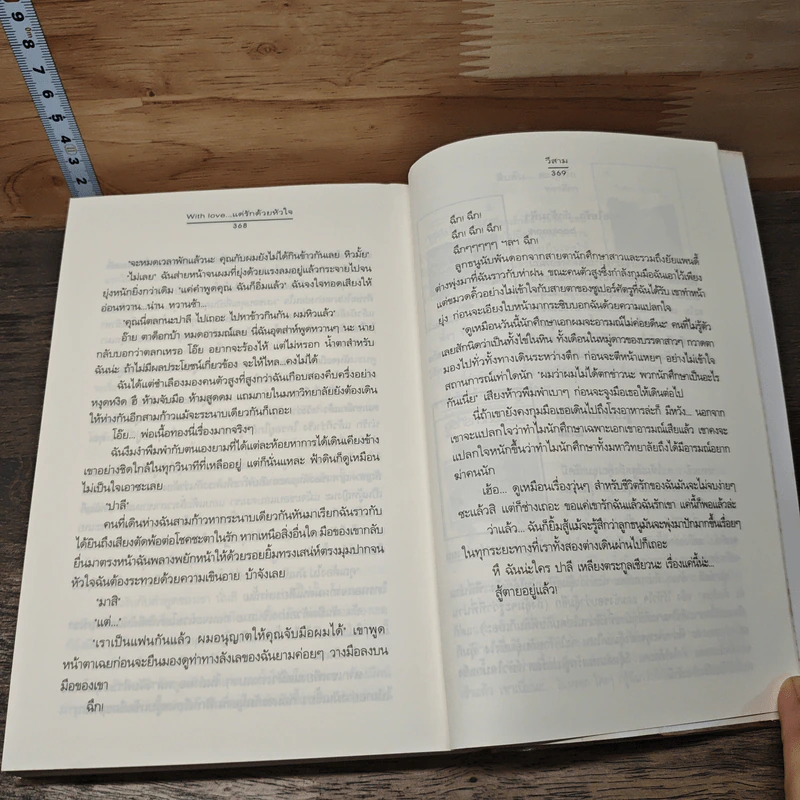 With love...แค่รักด้วยหัวใจ
368
'จะหมดเวลาพักแล้วนะ คุณกับผมยังไม่ได้กินข้าวกันเลย หิวมั้ย'
'ไม่เลย' ฉันส่ายหน้าจนผมที่ยุ่งด้วยแรงลมอยู่แล้วกระจายไปจน
ยุ่งหนักยิ่งกว่าเดิม 'แค่คำพูดคุณ ฉันก็อิ่มแล้ว' ฉันจงใจทอดเสียงให้
อ่อนหวาน...น่าน หวานซ้า...
'คุณนี่ตลกนะปาลี ไปเถอะ ไปหาข้าวกินกัน ผมหิวแล้ว'
อ๊าย ตาต็อกบ้า หมดอารมณ์เลย นี่ฉันอุตส่าห์พูดหวานๆ นะ นาย
กลับบอกว่าตลกเหรอ โอ๊ย อยากจะร้องไห้ แต่ไม่หรอก น้ำตาสำหรับ
ฉันน่ะ ถ้าไม่มีผลประโยชน์เกี่ยวข้อง จะให้ไหล...คงไม่ได้
ฉันได้แต่ชำเลืองมองคนตัวสูงที่สูงกว่าฉันเกือบสองคืบครึ่งอย่าง
หงุดหงิด ฮึ ห้ามจับมือ ห้ามสูดดม แถมภายในมหาวิทยาลัยยังต้องเดิน
ให้ห่างกันอีกสามก้าวแม้จะระนาบเดียวกันก็เถอะ
โอ๊ย... พ่อเนื้อทองนี่เรื่องมากจริงๆ
ฉันงึมงำพึมพำกับตนเองยามที่ได้แต่ละห้อยหาการได้เดินเคียงข้าง
เขาอย่างชิดใกล้ในทุกวินาทีที่เหลืออยู่ แต่ก็นั่นแหละ ฟ้าดินก็ดูเหมือน
ไม่เป็นใจเอาซะเลย
'ปาลี'
คนที่เดินห่างฉันสามก้าวหากระนาบเดียวกันหันมาเรียกฉันราวกับ
ได้ยินถึงเสียงตัดพ้อต่อโชคชะตาในรัก หากเหนือสิ่งอื่นใด มือของเขากลับ
ยื่นมาตรงหน้าฉันพลางพยักหน้าให้ด้วยรอยยิ้มทรงเสน่ห์ตรงมุมปากจน
หัวใจฉันต้องระทวยด้วยความเขินอาย บ้าจังเลย
'มาสิ'
'แต่...'
'เราเป็นแฟนกันแล้ว ผมอนุญาตให้คุณจับมือผมได้' เขาพูด
หน้าตาเฉยก่อนจะยืนมองดูท่าทางลังเลของฉันยามค่อยๆ วางมือลงบน
มือของเขา
ฉึก!
วีสาม
369
ฉึก! ฉึก!
ฉึก! ฉึก! ฉึก!
ฉึกๆๆๆๆๆ ฯลฯ ฉึก!
ลูกธนูนับพันดอกจากสายตานักศึกษาสาวและรวมถึงยัยแพนดี้
ต่างพุ่งมาที่ฉันราวกับห่าฝน ขณะคนตัวสูงซึ่งกำลังกุมมือฉันเอาไว้เพียง
แต่ขมวดคิ้วอย่างไม่เข้าใจกับสายตาของซูเปอร์ศัตรูที่ฉันได้รับ เขาทำหน้า
ยุ่ง ก่อนจะเอียงใบหน้ามากระซิบบอกฉันด้วยความแปลกใจ
'ดูเหมือนวันนี้นักศึกษาเอกผมจะอารมณ์ไม่ค่อยดีนะ' คนที่ไม่รู้ตัว
เลยสักนิดว่าเป็นทั้งไข่ในหิน ทั้งเดือนในหมู่ดาวของบรรดาสาวๆ กวาดตา
มองไปทั่วทั้งทางเดินระหว่างตึก ก่อนจะตีหน้าแหยๆ อย่างไม่เข้าใจ
สถานการณ์เท่าใดนัก 'ผมว่าผมไม่ได้ตดกข่าวนะ พวกนักศึกษาเป็นอะไร
กันเนี่ย' เสียงห้าวพึมพำเบาๆ ก่อนจะจูงมือเธอให้เดินต่อไป
นี่ถ้าเขายังคงกุมมือเธอเดินไปถึงโรงอาหารล่ะก็ มีหวัง... นอกจาก
เขาจะแปลกใจว่าทำไมนักศึกษาเฉพาะเอกเขาอารมณ์เสียแล้ว เขาคงจะ
แปลกใจหนักขึ้นว่าทำไมนักศึกษาทั้งมหาวิทยาลัยถึงได้มีอารมณ์อยาก
ฆ่าคนนัก
เฮ้อ... ดูเหมือนเรื่องวุ่นๆ สำหรับชีวิตรักของฉันมันจะไม่จบง่ายๆ
ซะแล้วสิ แต่ก็ช่างเถอะ ขอแค่เขารักฉันแล้วฉันรักเขา แค่นี้ก็พอแล้วล่ะ
ว่าแล้ว... ฉันก็ยิ้มสู้แม้จะรู้สึกว่าลูกธนูมันจะพุ่งมาปักมากขึ้นเรื่อยๆ
ในทุกระยะทางที่เราทั้งสองต่างเดินผ่านไปก็เถอะ
หึ ฉันน่ะใคร ปาลี เหลียงตระกูลเชียวนะ เรื่องแค่นี้น่ะ...
สู้ตายอยู่แล้ว!